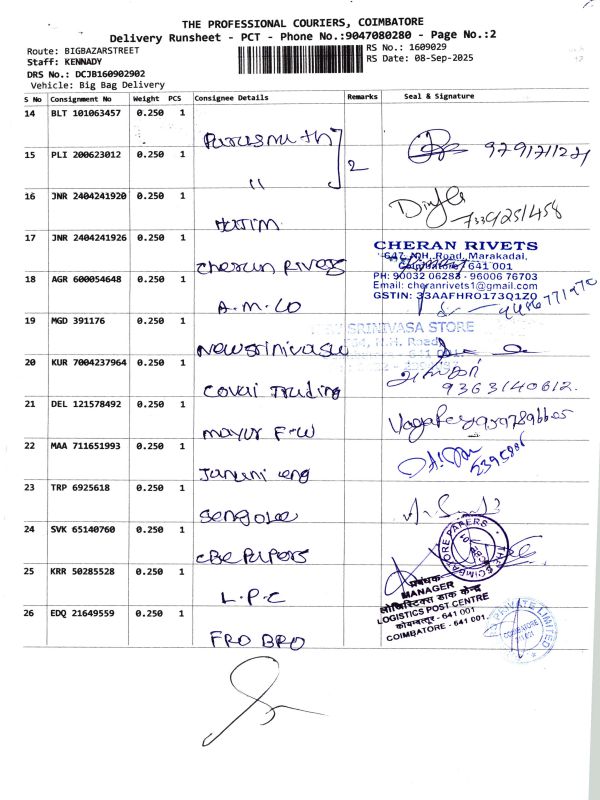 THE PROFESSIONAL COURIERS, COIMBATORE
Delivery Runsheet - PCT - Phone No.:9047080280 - Page No.:2
Route: BIGBAZARSTREET
RS No.: 1609029
Staff: KENNADY
RS Date: 08-Sep-2025
DRS No.: DCJB160902902
Vehicle: Big Bag Delivery
S No Consignment No Weight PCS Consignee Details Remarks Seal & Signature
14 BLT 101063457 0.250 1
15 PLI 200623012 0.250 1 " 2
16 JNR 2404241920 0.250 1 HATIM
17 JNR 2404241926 0.250 1 Cherun Rivets
CHERAN RIVETS
647, N.H. Road, Marakadai,
Coimbatore - 641 001
PH: 90032 06283 - 96006 76703
Email: cheranrivets1@gmail.com
GSTIN: 33AAFHR0173Q1Z0
18 AGR 600054648 0.250 1 A.M.CO
19 MGD 391176 0.250 1 New Srinivasu
SRINIVASA STORE
N.H. Road
641 001
20 KUR 7004237964 0.250 1 Covai Truding
9363140612.
21 DEL 121578492 0.250 1 mayur F-W
22 MAA 711651993 0.250 1 Januni eng
23 TRP 6925618 0.250 1 Sengole
24 SVK 65140760 0.250 1 CBE PAPERS
25 KRR 50285528 0.250 1 L.P.C
प्रबंधक
MANAGER
लोजिस्टिक्स डाक केन्द्र
LOGISTICS POST CENTRE
कोयम्बत्तूर - 641 001
COIMBATORE - 641 001.
26 EDQ 21649559 0.250 1 FRO BRO
PRIVATE LIMITED
COIMBATORE